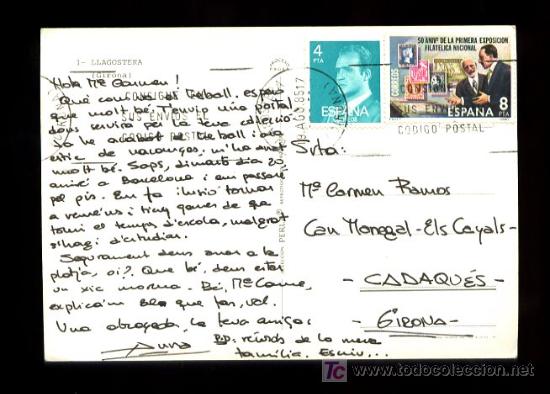 1- LLAGOSTERA
(Girona)
Hola Mª Carmen!
Què com va el treball, espero
que molt bé. T'envio una postal
doncs serviró per la teva col·lecció
Ja he acabat de treball i ara
estic de vacances, m'ha anat
molt bé. Saps, dimarts dia 20,
aniré a Barcelona i em passaré
pel pis. Em fa ilusió tornar
a veure'ns i tinc ganes de que
torni el temps d'escola, malgrat
s'hagi d'estudiar.
Segurament deus anar a la
platja, oi? Que bé, deus estar
un xic morena. Bé, Mª Carme,
explica'm això que fas, val.
Una abraçada, la teva amiga:
Anna
P.D: récords de la meva
família. Escriu...
4
PTA
50 ANIVº DE LA PRIMERA EXPOSICION
FILATELICA NACIONAL
CORREOS
ESPAÑA
8
PTA
CODIGO POSTAL
SUS ENVIOS
Srta:
Mª Carmen Ramos
Can Mongal - Els Caials -
- CADAQUÉS -
- GIRONA -
TC
todocoleccion
www.todocoleccion.net